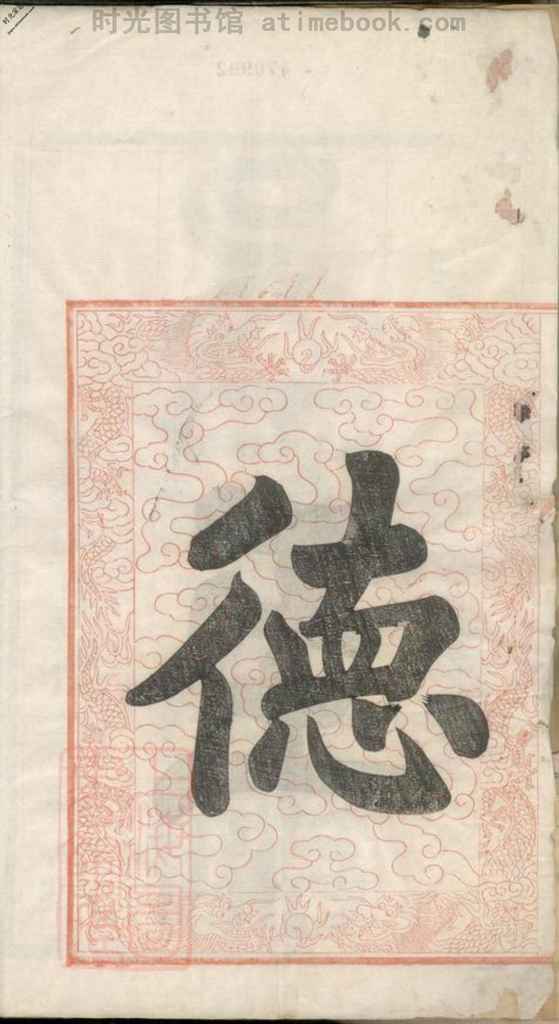 时光图书馆 atimebook.com
470992
德